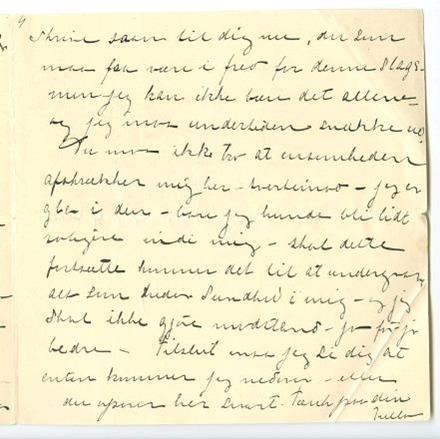 skrive saan til dig nu, du som
maa faa være i fred for denne slags-
men jeg kan ikke bære det allene-
og jeg maa undertiden snakke ud.
Du maa ikke tro at ensomheden
afskrækker mig her - tvertimod - jeg er
glad i den - bare jeg kunde bli lidt
roligere inde i mig - skal dette
fortsætte kommer det til at undergrave
alt som heder Sundhed i mig - og jeg
skal ikke gjøre modstand - jo før jo
bedre - Tilslut maa jeg si dig at
enten kommer jeg nedover - eller
du opover her snart. Tænk paa din